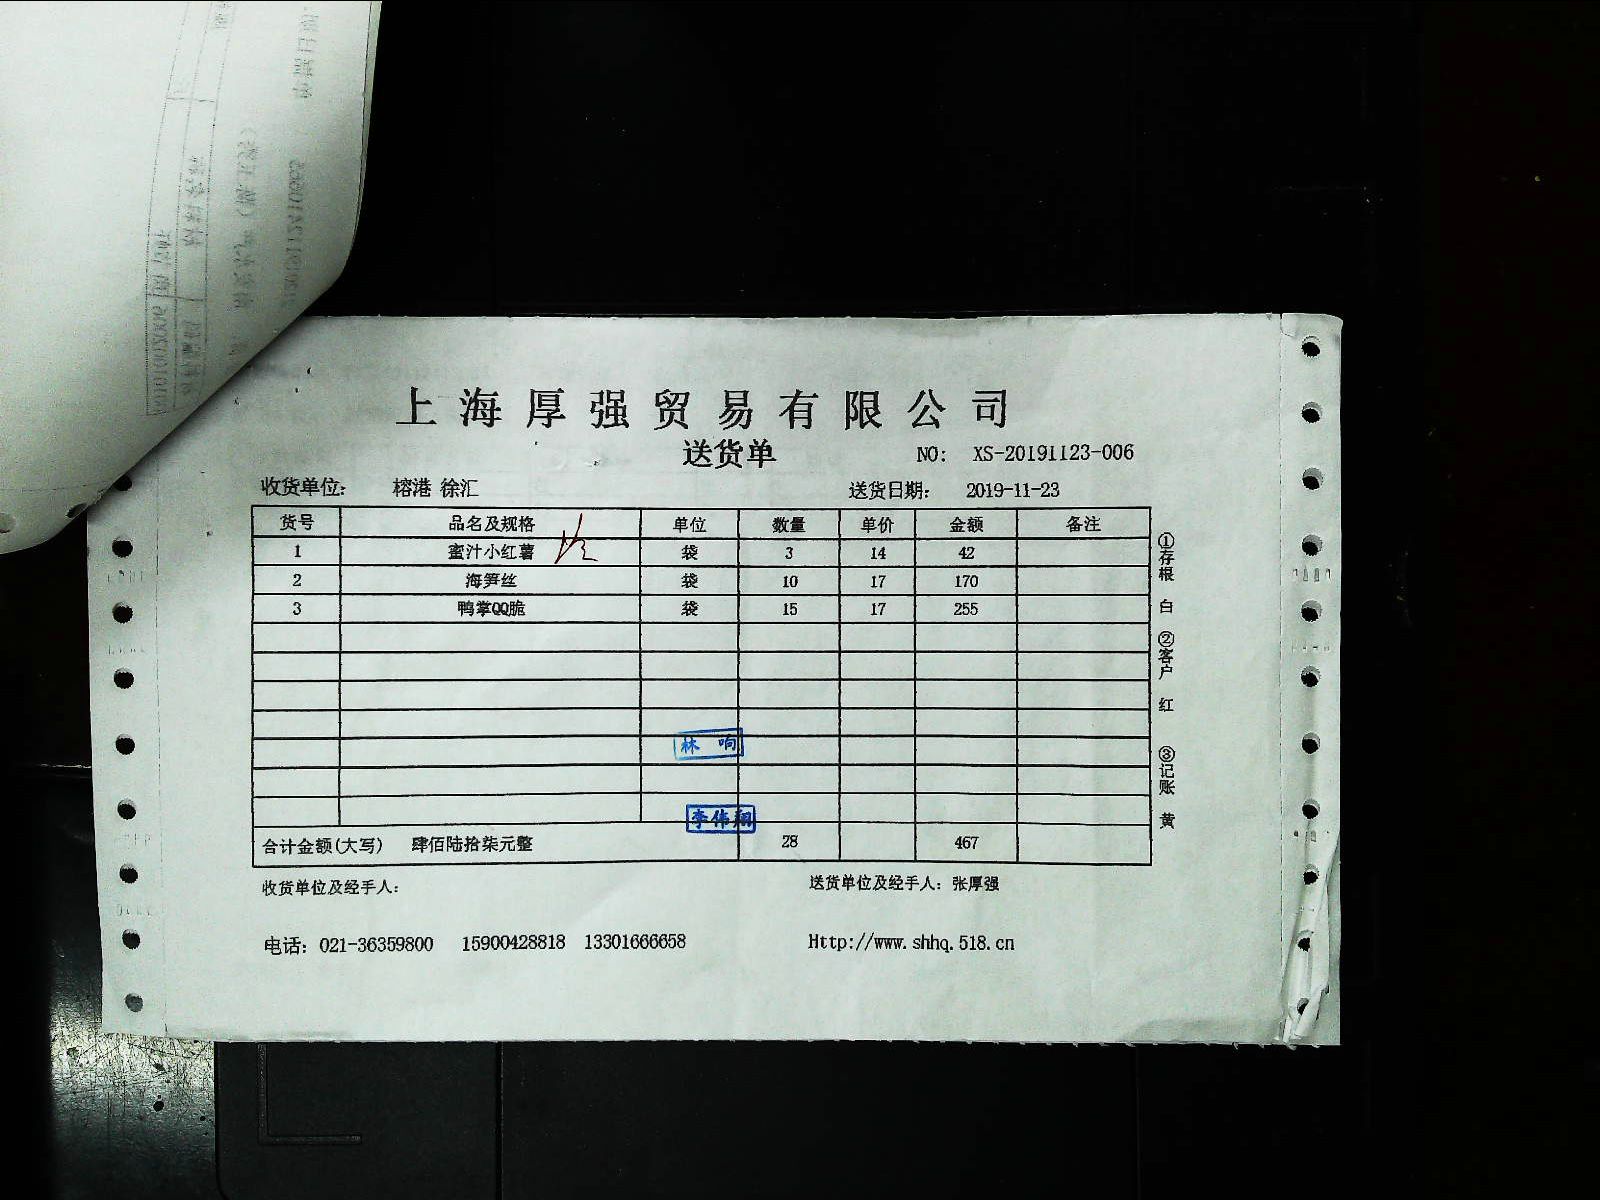 上海厚强贸易有限公司
送货单 NO: XS-20191123-006
收货单位: 榕港 徐汇 送货日期: 2019-11-23
货号 品名及规格 单位 数量 单价 金额 备注
1 蜜汁小红薯 袋 3 14 42
2 海笋丝 袋 10 17 170
3 鸭掌QQ脆 袋 15 17 255
林响
李伟翔
合计金额(大写) 肆佰陆拾柒元整 28 467
收货单位及经手人: 送货单位及经手人: 张厚强
电话: 021-36359800 15900428818 13301666658 Http://www.shhq.518.cn
①存根 白 ②客户 红 ③记账 黄